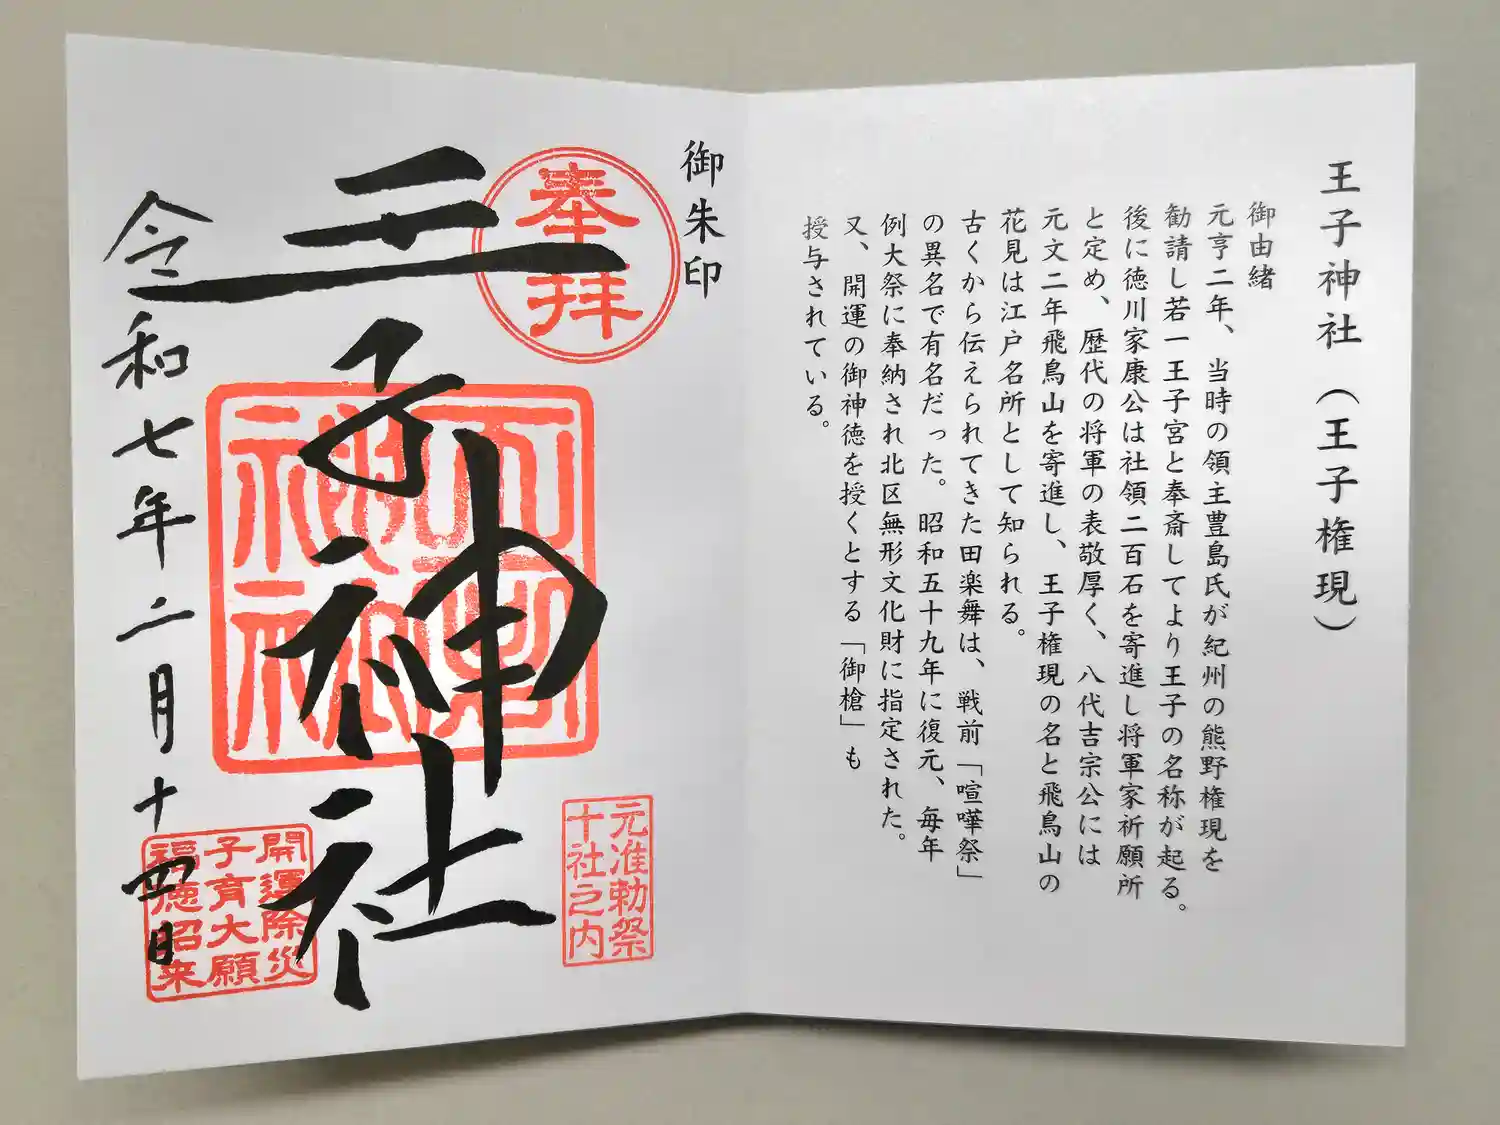 王子神社（王子権現）
御由緒
元亨二年、当時の領主豊島氏が紀州の熊野権現を
勧請し若一王子宮と奉斎してより王子の名称が起る。
後に徳川家康公は社領二百石を寄進し将軍家祈願所
と定め、歴代の将軍の表敬厚く、八代吉宗公には
元文二年飛鳥山を寄進し、王子権現の名と飛鳥山の
花見は江戸名所として知られる。
古くから伝えられてきた田楽舞は、戦前「喧嘩祭」
の異名で有名だった。昭和五十九年に復元、毎年
例大祭に奉納され北区無形文化財に指定された。
又、開運の御神徳を授くとする「御槍」も
授与されている。
御朱印
奉拝
王子神社
王子神社
元准勅祭
十社之内
開運除災
子育大願
福徳昭来
令和七年二月十四日